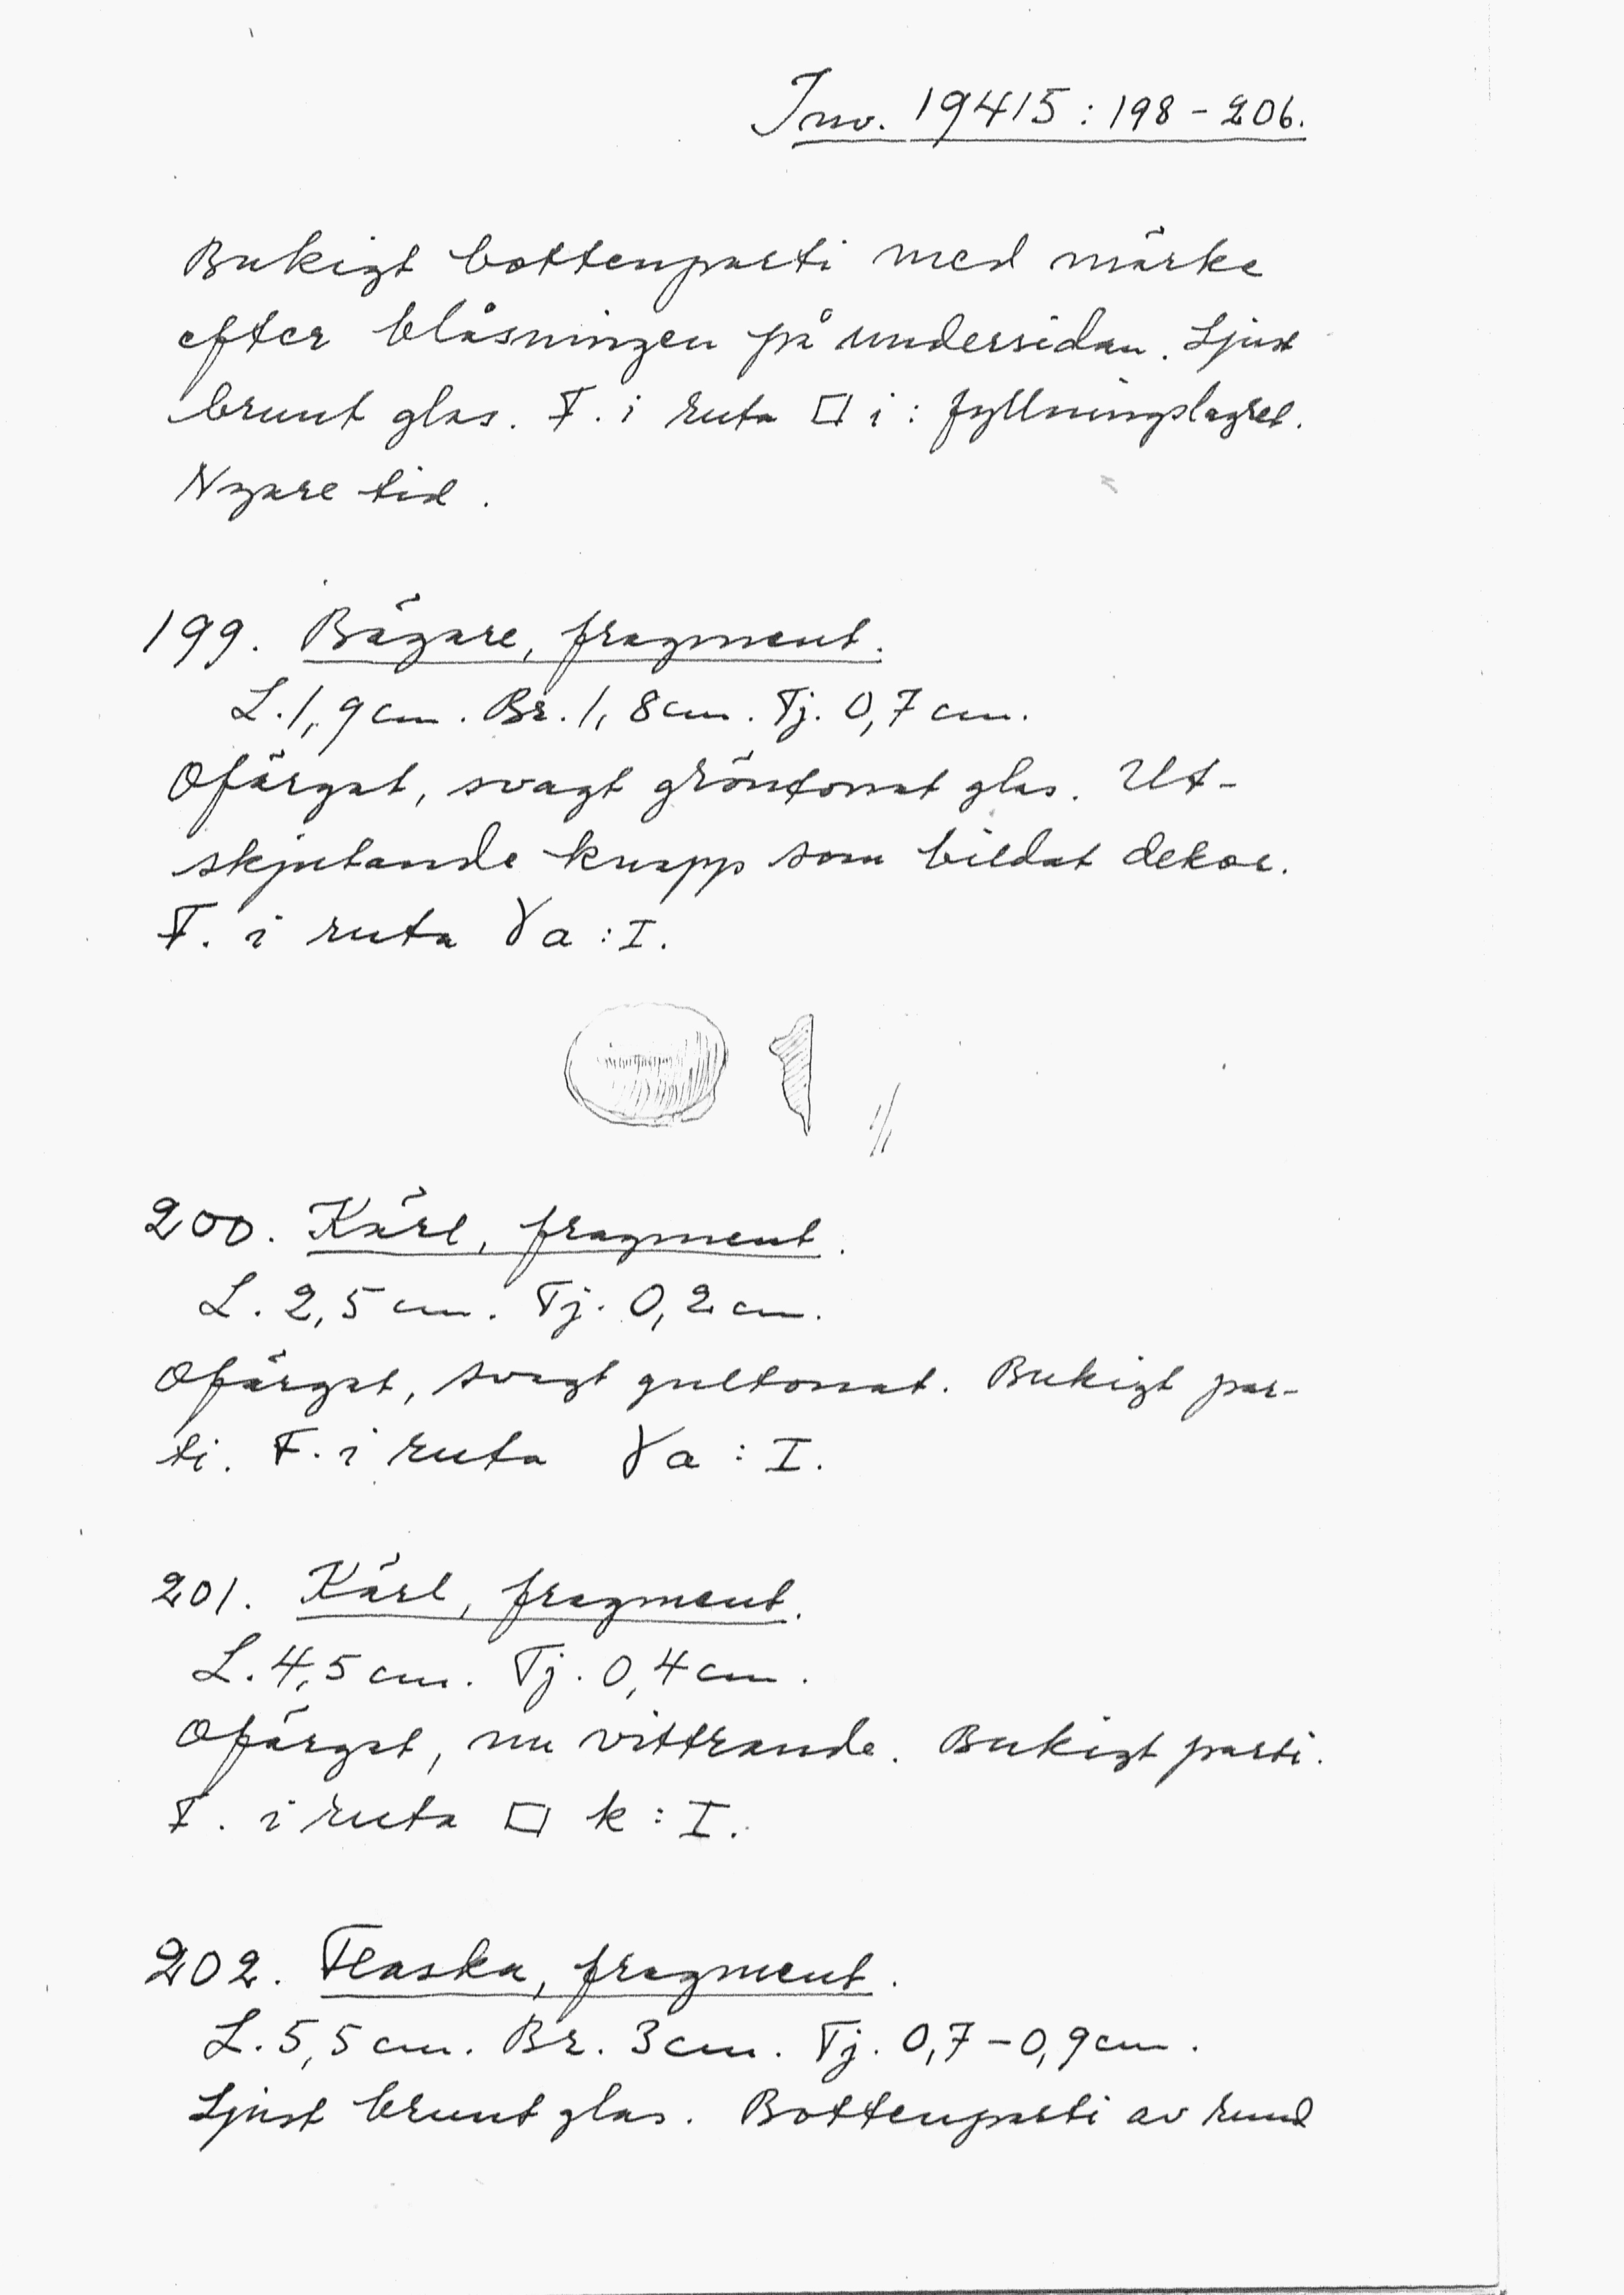 Inv. 19415:198-206.
Bukigt bottenparti med märke
efter blåsningen på undersidan. Ljust
brunt glas. F. i ruta □ i: fyllningslagret.
Nyare tid.
199. Bägare, fragment.
L. 1,9 cm. Br. 1,8 cm. Tj. 0,7 cm.
Ofärgat, svagt gröntonat glas. Ut-
skjutande knapp som bildat dekor.
F. i ruta γ a: I.
1/1
200. Kärl, fragment.
L. 2,5 cm. Tj. 0,2 cm.
Ofärgat, svagt gultonat. Bukigt par-
ti. F. i ruta γ a: I.
201. Kärl, fragment.
L. 4,5 cm. Tj. 0,4 cm.
Ofärgat, nu vittrande. Bukigt parti.
F. i ruta □ k: I.
202. Flaska, fragment.
L. 5,5 cm. Br. 3 cm. Tj. 0,7-0,9 cm.
Ljust brunt glas. Bottenparti av rund